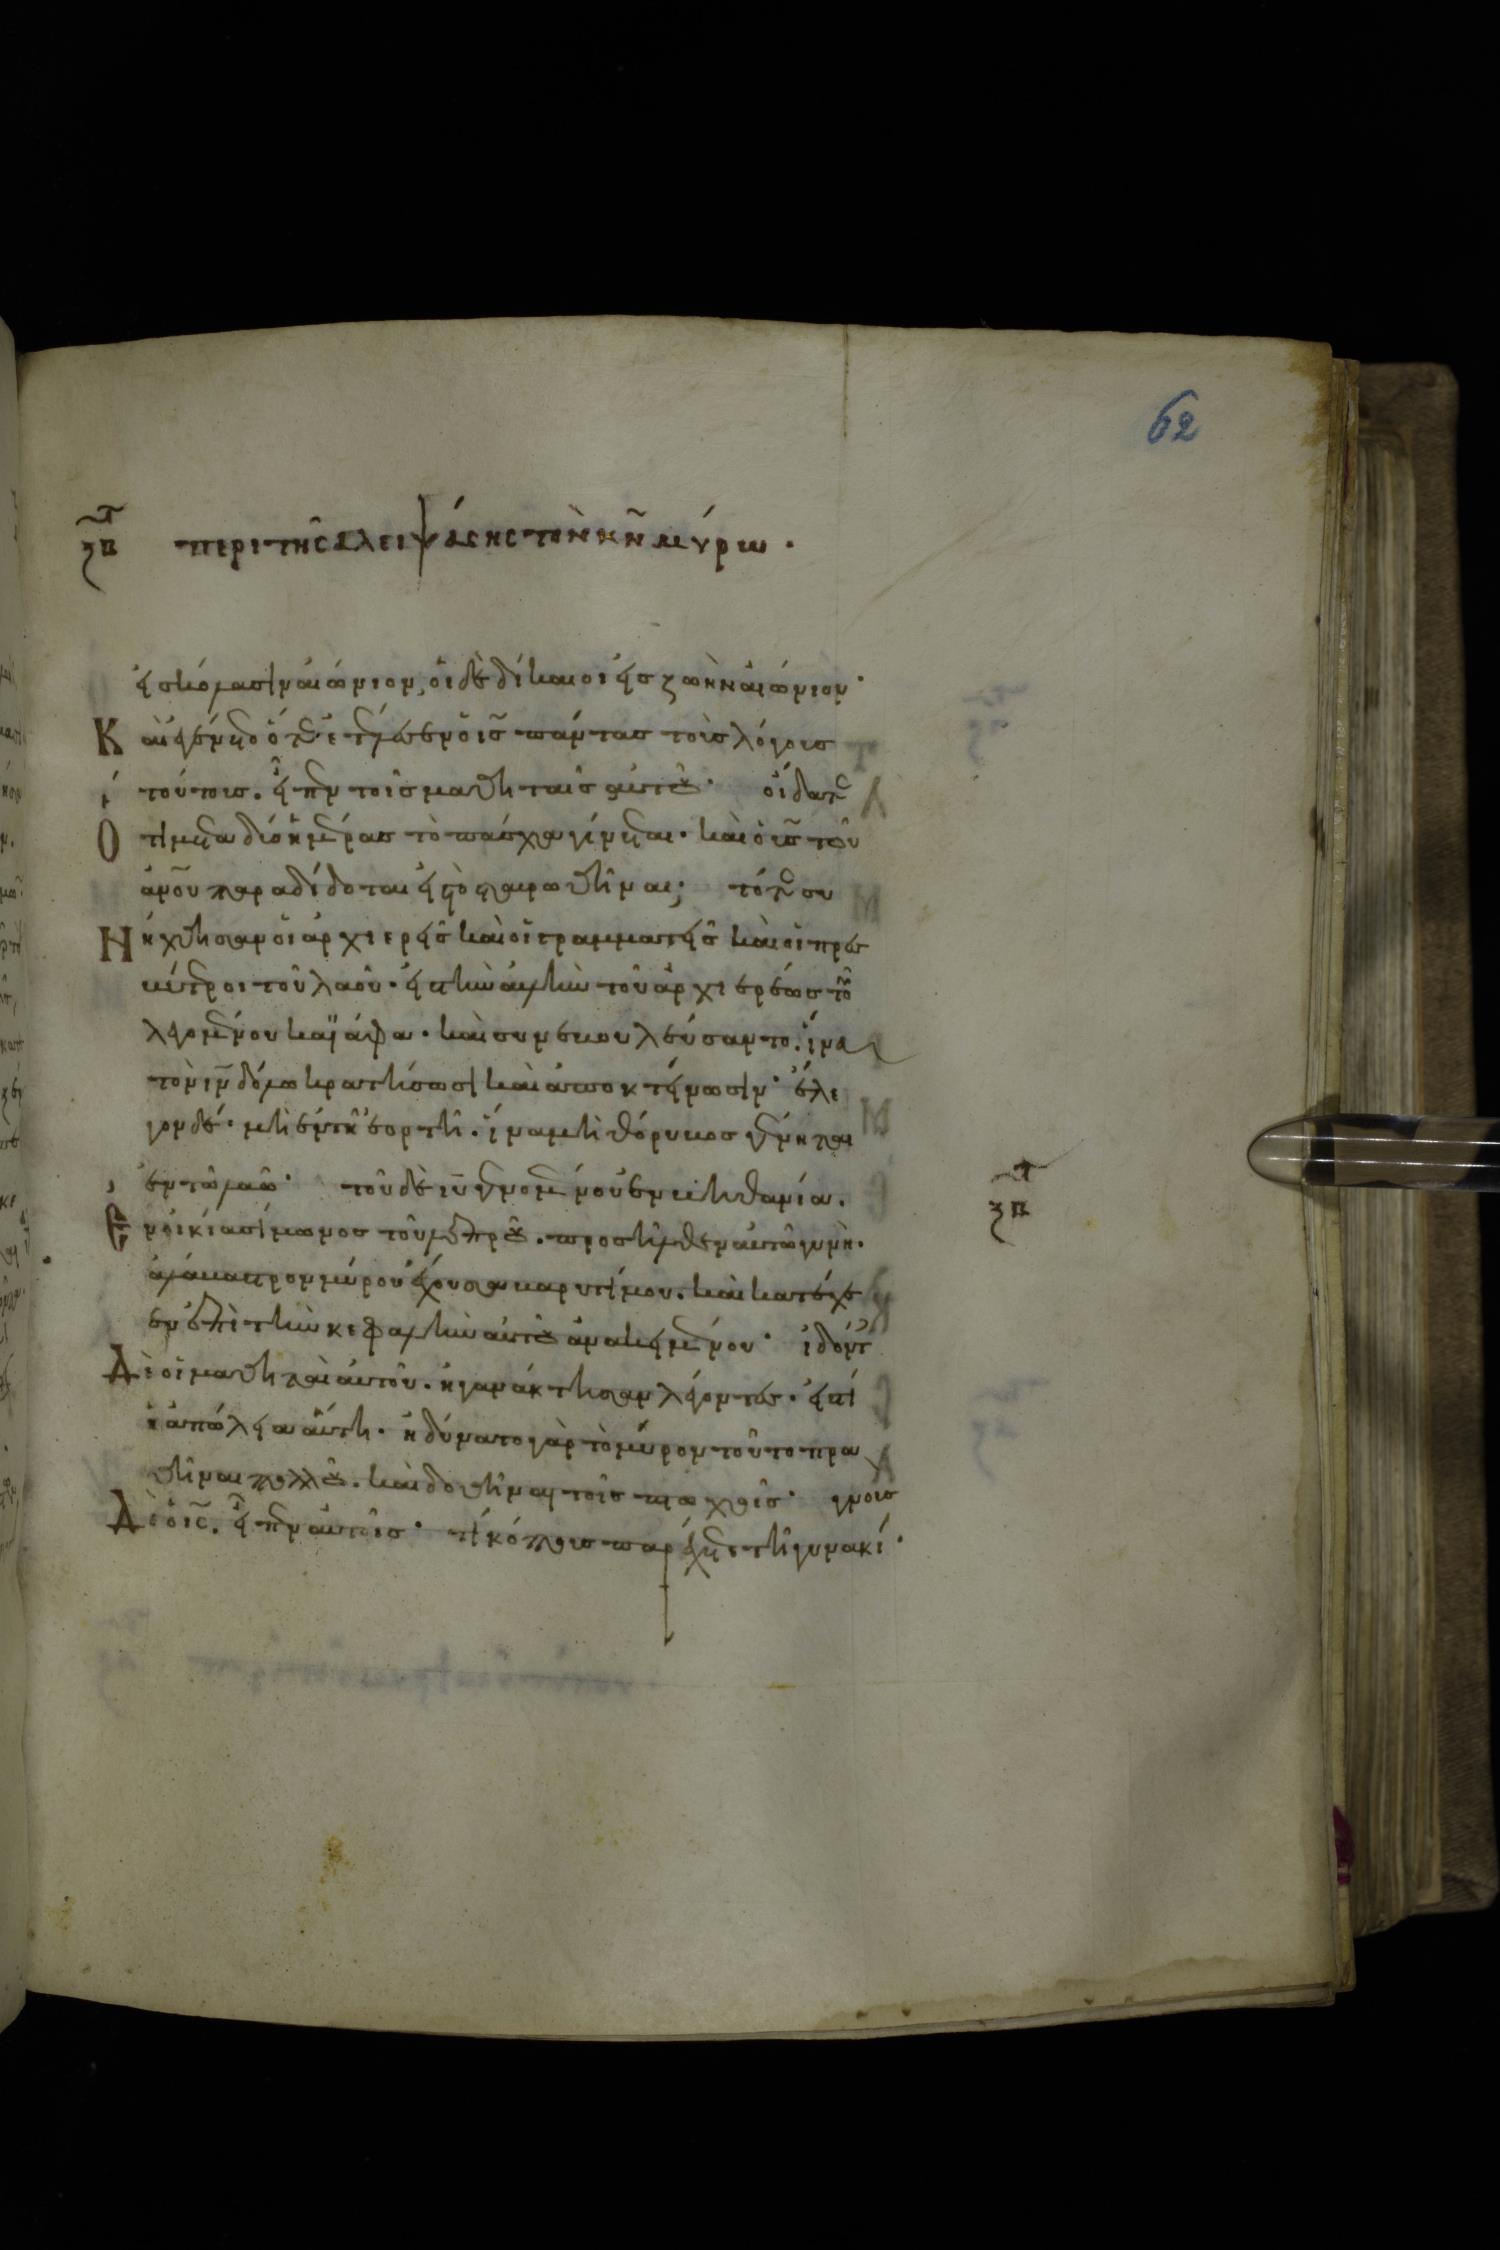 62
ξ̅β̅ περι της αλειψάσης τὸν κ̅ν̅ μύρω.
εἰς κόλασιν αἰώνιον, οἱ δὲ δίκαιοι εἰς ζωὴν αἰώνιον·
Καὶ ἐγένετο ὅτε ἐτέλεσεν ὁ ι̅ς̅ πάντας τοὺς λόγους
τούτους. εἶπεν τοῖς μαθηταῖς αὐτοῦ· οἴδατε
Ὅτι μετὰ δύο ἡμέρας τὸ πάσχα γίνεται· καὶ ὁ υ̅ς̅ τοῦ
ἀνο̅υ̅ παραδίδοται εἰς τὸ σταυρωθῆναι· τότε συ
Νήχθησαν οἱ ἀρχιερεῖς καὶ οἱ γραμματεῖς καὶ οἱ πρεσ
βύτεροι τοῦ λαοῦ· εἰς τὴν αὐλὴν τοῦ ἀρχιερέως τοῦ
λεγομένου καϊάφα· καὶ συνεβουλεύσαντο. ἵνα
τὸν ι̅ν̅ δόλω κρατήσωσι καὶ ἀποκτείνωσιν· ἔλε
γον δέ· μὴ ἐν τῆ ἑορτῆ. ἵνα μὴ θόρυβος γένηται
ἐν τῶ λαῶ· τοῦ δὲ ι̅υ̅ γενομένου ἐν βηθανία.
Ἐν οἰκία σίμωνος τοῦ λεπροῦ. προσῆλθεν αὐτῶ γυνὴ.
ἀλάβαστρον μύρου ἔχουσα βαρυτίμου. καὶ κατέχε
εν ἐπὶ τὴν κεφαλὴν αὐτοῦ ἀνακειμένου· ἰδόντες
Δὲ οἱ μαθηταὶ αὐτοῦ. ἠγανάκτησαν λέγοντες· εἰς τί
ἡ ἀπώλεια αὕτη. ἠδύνατο γὰρ τὸ μύρον τοῦτο πρα
θῆναι πολλοῦ. καὶ δοθῆναι τοῖς πτωχοῖς· γνοὺς
Δὲ ὁ ι̅ς̅. εἶπεν αὐτοῖς· τί κόπους παρέχετε τῆ γυναικί·
ξ̅β̅